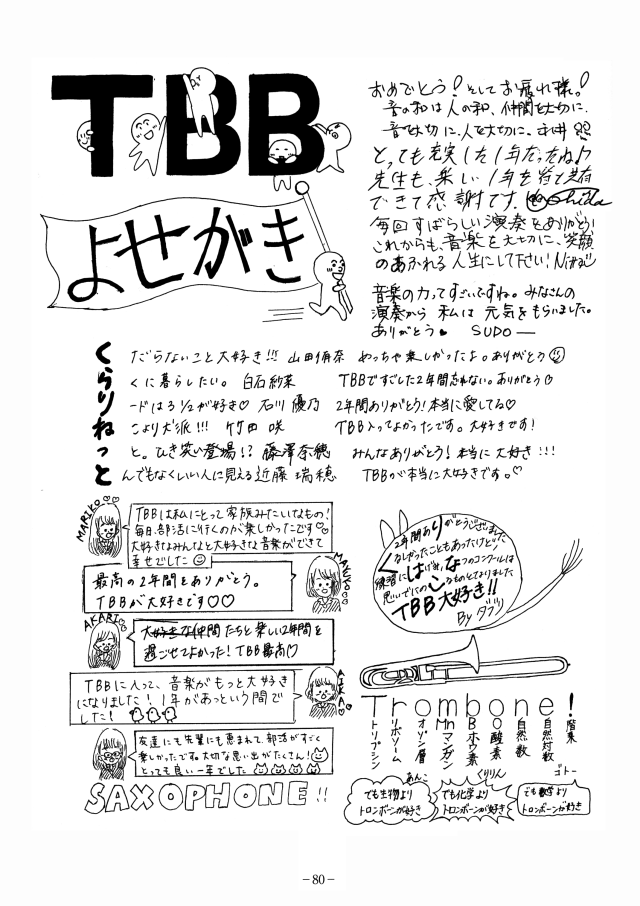 TBB
よせがき
おめでとう!そしてお疲れ様!
音の和は人の和、仲間を大切に、
音を大切に、人を大切に。
とっても充実した1年だったね♪
先生も、楽しい1年を皆で共有
できて感謝です。
毎回すばらしい演奏をありがとう!
これからも、音楽を大切に、笑顔
のあふれる人生にして下さい!
音楽の力ってすごいですね。みなさんの
演奏から 私は 元気をもらいました。
ありがとう♥ SUDO
くだらないこと大好き!!! 山田 めっちゃ楽しかったよ。ありがとう
らくに暮らしたい。 白石紗菜 TBBですごした2年間忘れない。ありがとう♡
りードは3 1/2が好き♡ 石川 優乃 2年間ありがとう!本当に愛してる♡
ねこより犬派!!! 竹田 咲 TBB入ってよかったです。大好きです!
っと。ひき笑い登場!? 藤澤奈穂 みんなありがとう!本当に 大好き!!!
とんでもなくいい人に見える 近藤 瑞穂 TBBが本当に大好きです。♡
MARIKO♡♡
TBBは私にとって家族みたいなもの!
毎日、部活に行くのが楽しかったです♡♡
大好きなみんなと大好きな音楽ができて
幸せでした
最高の2年間をありがとう。
TBBが大好きです♡♡
AKARI♡
大好きな仲間たちと楽しい2年間を
過ごせてよかった!TBB最高♡
TBBに入って、音楽がもっと大好き
になりました!1年があっという間で
した!
友達にも先輩にも恵まれて、部活がすごく
楽しかったです。大切な思い出がたくさん!
とっても良い一年でした
SAXOPHONE!!
2年間ありがとうございました
くるしかったこともあったけど
練習にはげみ、なつのコンクールは
思いでにのこるものとなりました
TBB大好き!!
By タブツ
Trombone!
トリプシン
リボソーム
オゾン層
Mn マンガン
B ホウ素
O 酸素
自然数
自然対数
階乗
あんこ
でも生物より
トロンボーンが好き
くりりん
でも化学より
トロンボーンが好き
ゴトー
でも数学より
トロンボーンが好き
−80−